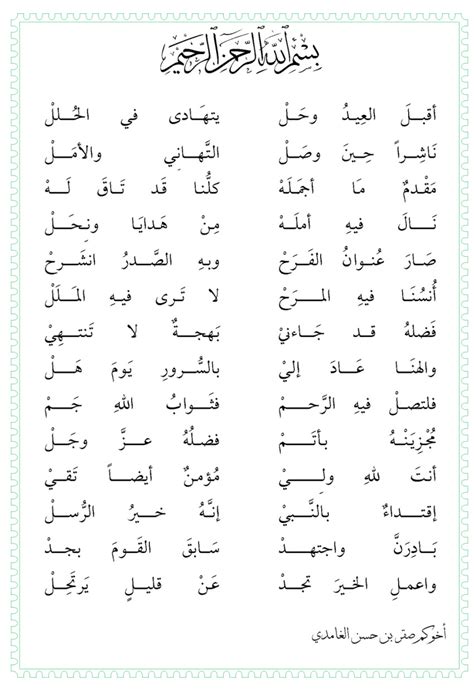 بِسْمِ ٱللَّهِ ٱلرَّحْمَٰنِ ٱلرَّحِيمِ
أقبـلَ العِيـدُ وحَـلْ يتهَـادى في الحُـللْ
نَاشِـراً حِـينَ وصَـلْ التَّهـانِي والأمَـلْ
مَقْـدمٌ مَـا أجمَـلَهْ كلُّنـا قَـد تَـاقَ لَـهْ
نَـالَ فيهِ أملَـهْ مِـنْ هَـدايَا ونِحَـلْ
صَـارَ عُنـوانُ الفَـرَحْ وبهِ الصَّـدرُ انشَـرحْ
أُنسُنَـا فيهِ المـرَحْ لا تَـرى فيهِ المَلَـلْ
فَضلهُ قـد جَـاءنيْ بَهجـةٌ لا تَنتهِـيْ
والهنَـا عَـادَ إليْ بالسُّـرورِ يَـومَ هَـلْ
فلتصلْ فيهِ الرَّحـمْ فثَـوابُ اللهِ جَـمْ
مُجْزِيَنْـهُ بـأتَـمْ فضلُهُ عـزَّ وجَـلْ
أنتَ للهِ ولِـيْ مُؤمـنٌ أيضـاً تَقـيْ
إقتـداءً بالنَّـبيْ إنَّـهُ خـيرُ الرُّسـلْ
بَـادِرَنَّ واجتهـدْ سَـابقَ القَـومَ بجـدْ
واعمـلِ الخـيرَ تجـدْ عَـنْ قليـلٍ يَرتحِـلْ
أخوكم صقر بن حسن الغامدي